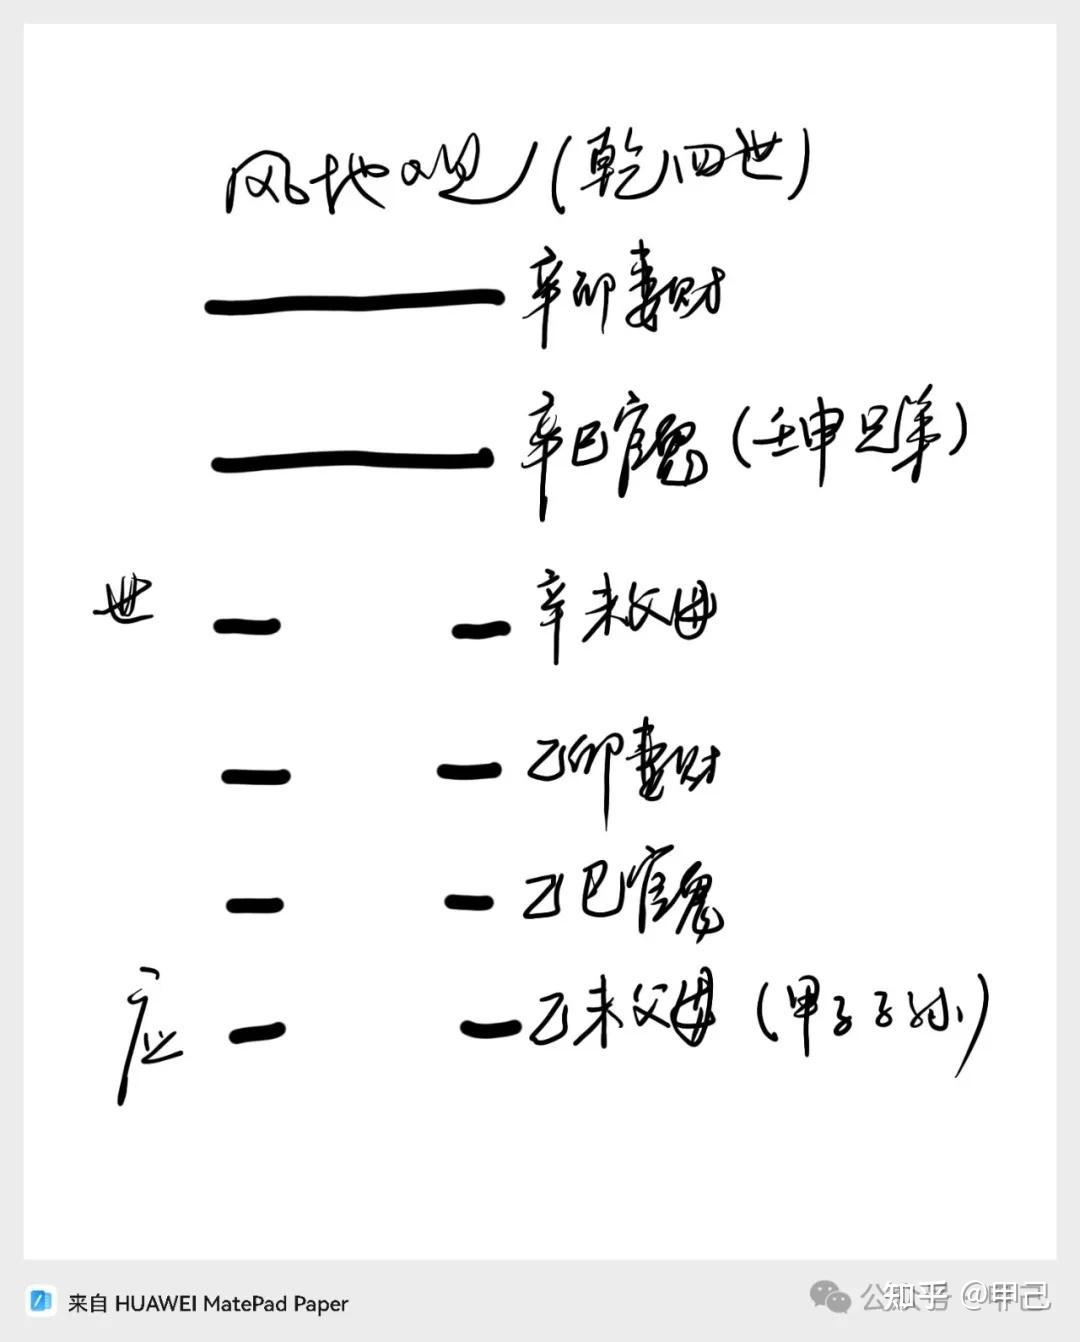 风地观(乾四世)
辛卯妻财
辛巳官鬼(壬申兄弟)
世 辛未父母
乙卯妻财
乙巳官鬼
应 乙未父母(甲子子孙)
来自 HUAWEI MatePad Paper
知乎 @甲己